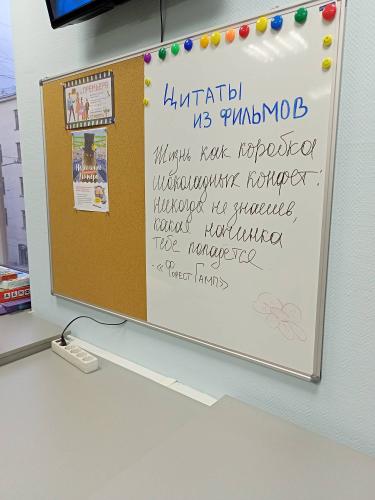 ПРЕМЬЕРА
ЦИТАТЫ
ИЗ ФИЛЬМОВ
Жизнь как коробка
шоколадных конфет:
никогда не знаешь,
какая начинка
тебе попадется
- «Форест Гамп»